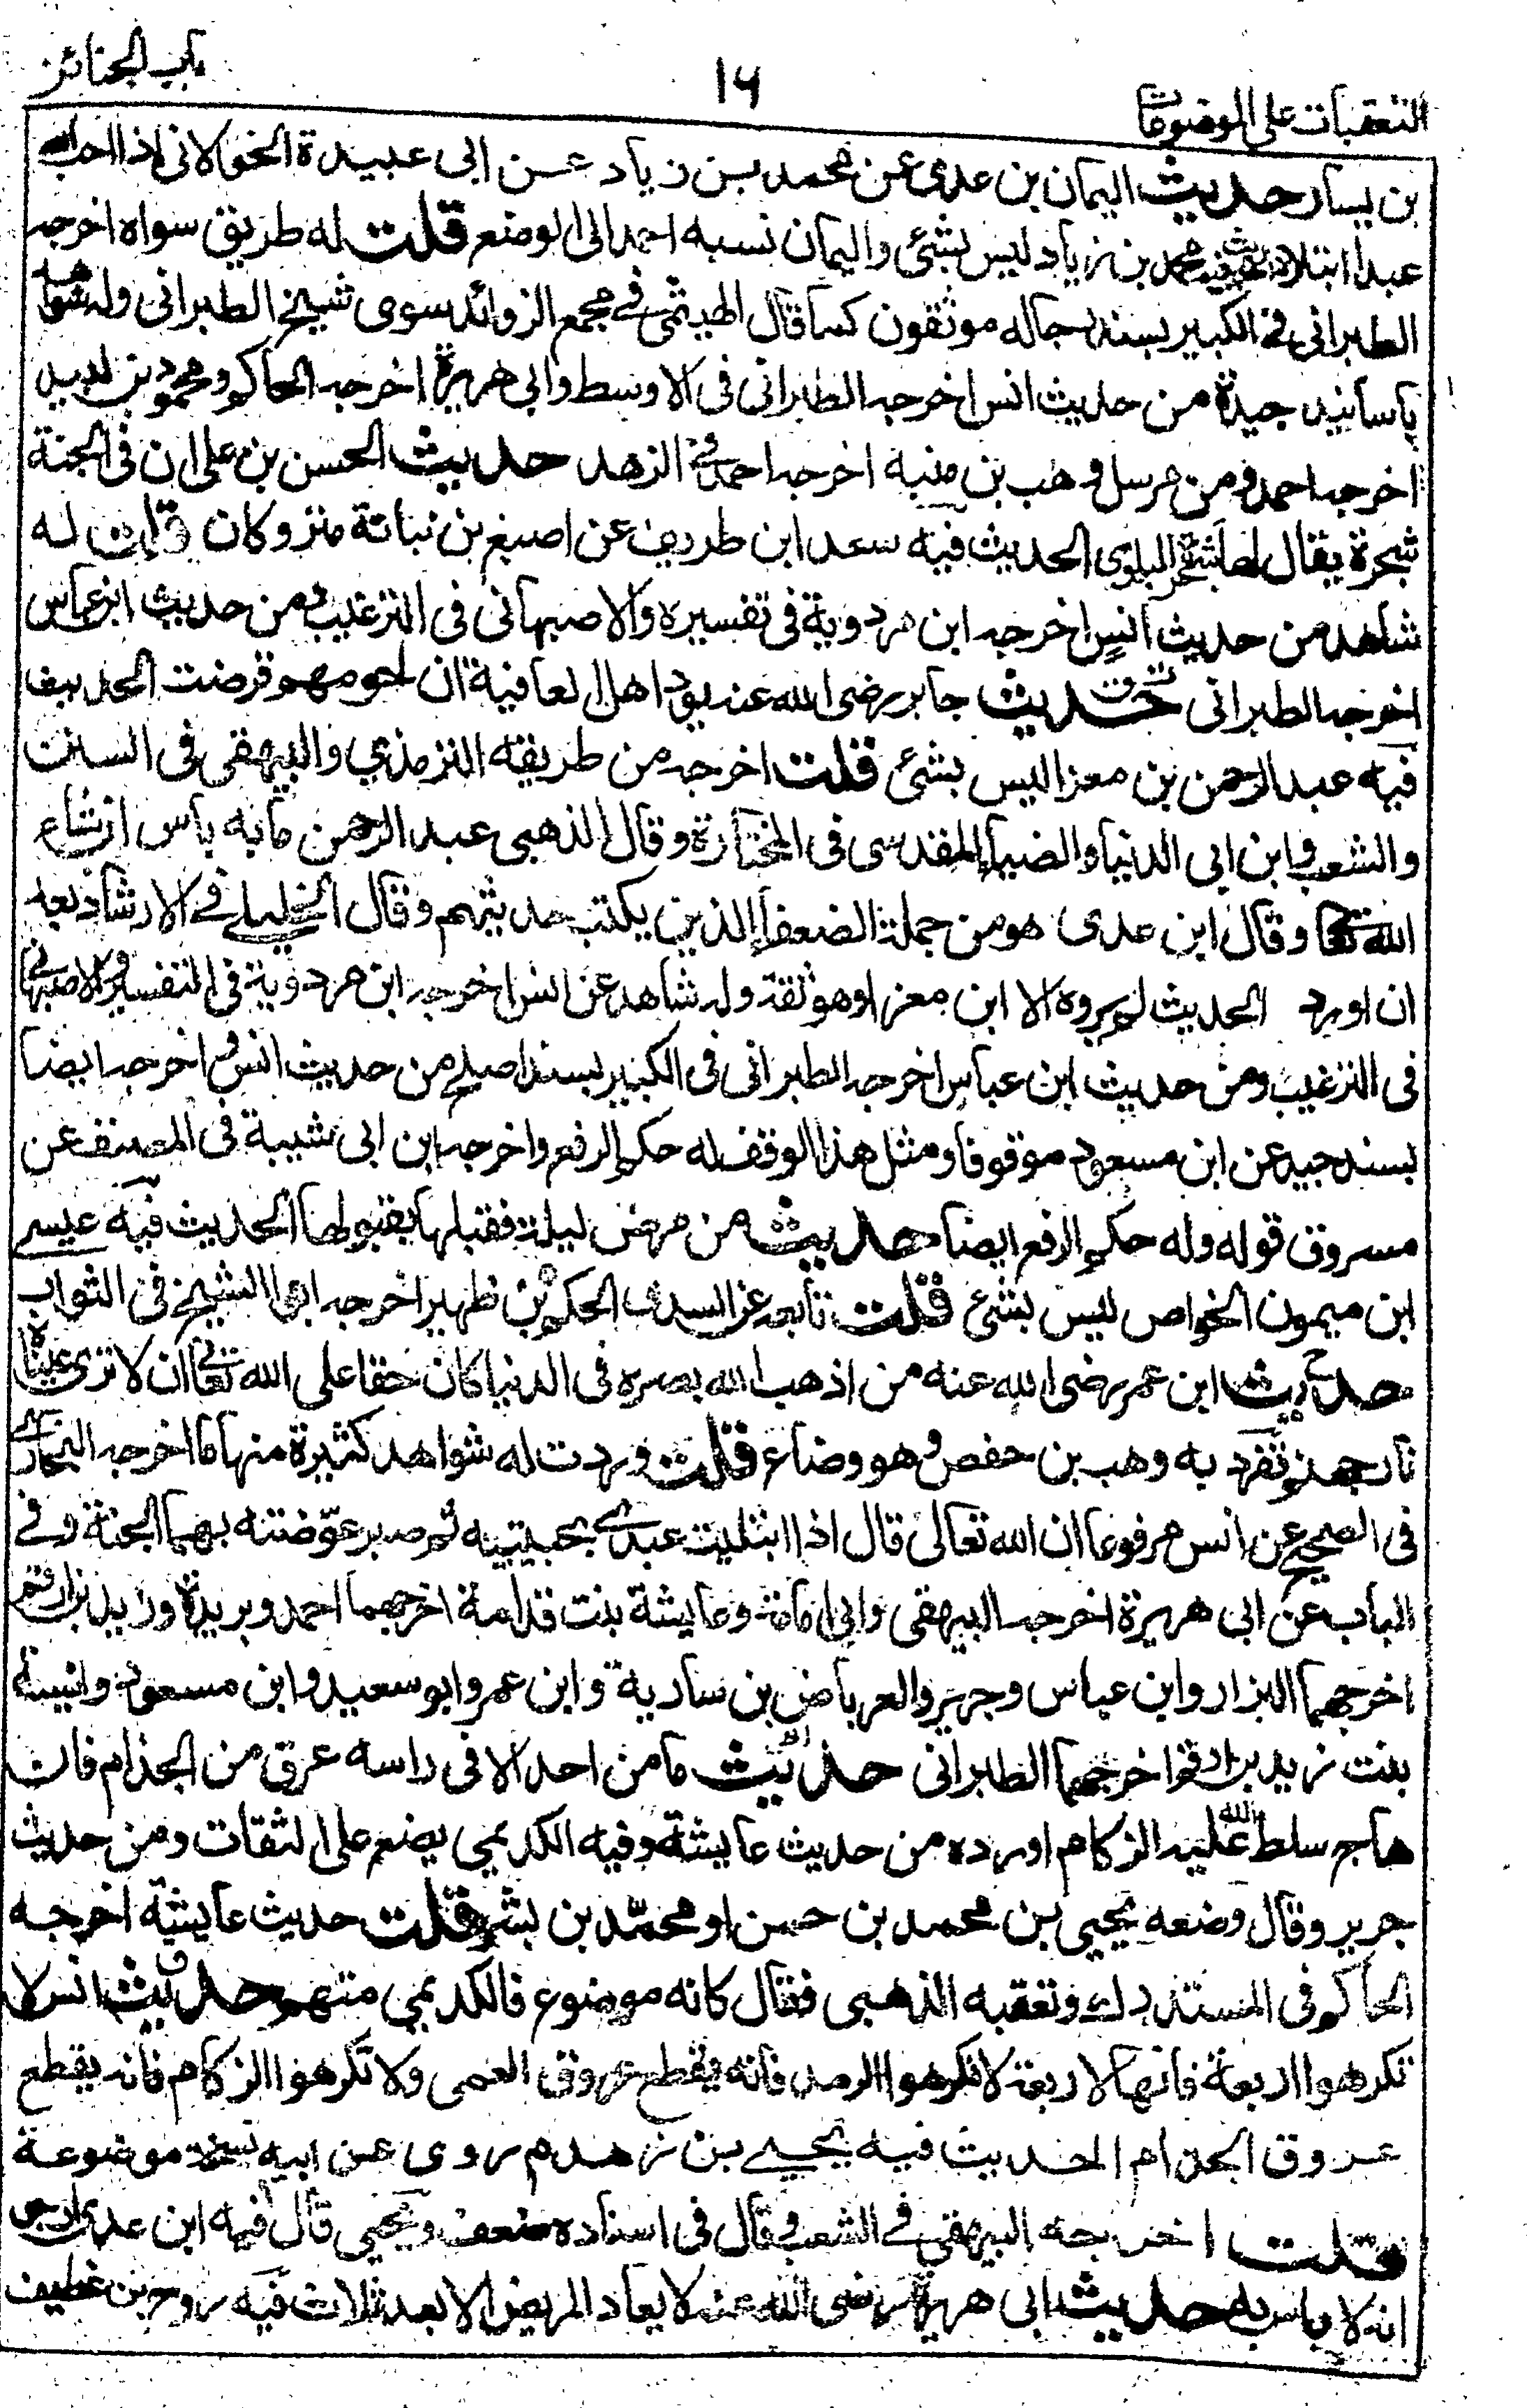 باب الجنائز
١٦
التعقبات على الموضوعات
بن يسار حديث اليمان بن عدى عن محمد بن زياد عن ابى عبيدة الخولانى اذا احب الله
عبدا ابتلاه محمد بن زياد ليس بشئ واليمان نسبه احمد الى الوضع قلت له طريق سواه اخرجه
الطبرانى فى الكبير بسند رجاله موثقون كما قال الهيثمى فے مجمع الزوائد سوى شيخ الطبرانى وله شواهد
باسانيد جيدة من حديث انس اخرجه الطبرانى فى الاوسط وابى هريرة اخرجه الحاكم ومحمود بن لبيد
اخرجه احمد ومن مرسل وهب بن منبه اخرجه احمد فے الزهد حديث الحسن بن على ان فى الجنة
شجرة يقال لها شجرة البلوى الحديث فيه سعد ابن طريف عن اصبغ بن نباتة متروكان قلت له
شاهد من حديث انس اخرجه ابن مردوية فى تفسيره والاصبهانى فى الترغيب ومن حديث ابن عباس
اخرجه الطبرانى حديث جابر رضى الله عنه يود اهل العافية ان لحومهم قرضت الحديث
فيه عبد الرحمن بن معزا ليس بشئ قلت اخرجه من طريقه الترمذي والبيهقى فى السنن
والشعب وابن ابى الدنيا والضياء المقدسى فى المختارة وقال الذهبى عبد الرحمن ما به باس ان شاء
الله تعالى وقال ابن عدى هو من جملة الضعفاء الذين يكتب حديثهم وقال الخليلے فے الارشاد بعد
ان اورد الحديث لم يروه الا ابن معزا وهو ثقة وله شاهد عن انس اخرجه ابن مردوية فى التفسير والاصبهانى
فى الترغيب ومن حديث ابن عباس اخرجه الطبرانى فى الكبير بسند اصلح من حديث انس واخرجه ايضا
بسند جيد عن ابن مسعود موقوفا ومثل هذا الوقف له حكم الرفع واخرجه ابن ابى شيبة فى المصنف عن
مسروق قوله وله حكم الرفع ايضا حديث من مرض ليلة فقبلها بقبولها الحديث فيه عيسے
ابن ميمون الخواص ليس بشئ قلت تابعه عن السدى الحكم بن ظهير اخرجه ابو الشيخ فى الثواب
حديث ابن عمر رضى الله عنه من اذهب الله بصره فى الدنيا كان حقا على الله تعالى ان لا ترى عيناه
نار جهنم تفرد به وهب بن حفص وهو وضاع قلت وردت له شواهد كثيرة منها ما اخرجه البخارى
فى الصحيح عن انس مرفوعا ان الله تعالى قال اذا ابتليت عبدى بحبيبتيه ثم صبر عوّضته بهما الجنة وفے
الباب عن ابى هريرة اخرجه البيهقى وابى امامة وعايشة بنت قدامة اخرجهما احمد وبريدة وزيد بن ارقم
اخرجهما البزار وابن عباس وجرير والعرباض بن سارية وابن عمر وابو سعيد وابن مسعود وانيسة
بنت زيد بن ارقم اخرجهما الطبرانى حديث ما من احد الا فى راسه عرق من الجذام فان
هاج سلط الله عليه الزكام اورده من حديث عايشة وفيه الكديمي يضع على الثقات ومن حديث
جرير وقال وضعه يحيى بن محمد بن حسن او محمّد بن بشر قلت حديث عايشة اخرجه
الحاكم فى المستدرك وتعقبه الذهبى فقال كانه موضوع فالكديمي متهم حديث انس لا
تكرهوا اربعة فانها لاربعة لا تكرهوا الرمد فانه يقطع عروق العمى ولا تكرهوا الزكام فانه يقطع
عروق الجذام الحديث فيه يحيے بن زهدم روى عن ابيه نسخة موضوعة
قلت اخرجه البيهقى فے الشعب وقال فى اسناده ضعف ويحيى قال فيه ابن عدى ارجو
انه لا باس به حديث ابى هريرة رضى الله عنه لا يعاد المريض الا بعد ثلاث فيه روح بن غطيف